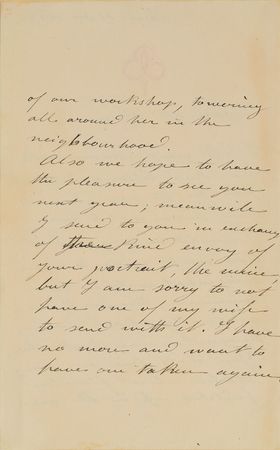 of our workshop, towering
all around her in the
neighbourhood.
Also we hope to have
the pleasure to see you
next year; meanwile
I send to you in exchang
of Kind envoy of
your portrait, the mine
but I am sorry to not
have one of my wife
to send with it. I have
no more and want to
have one taken again